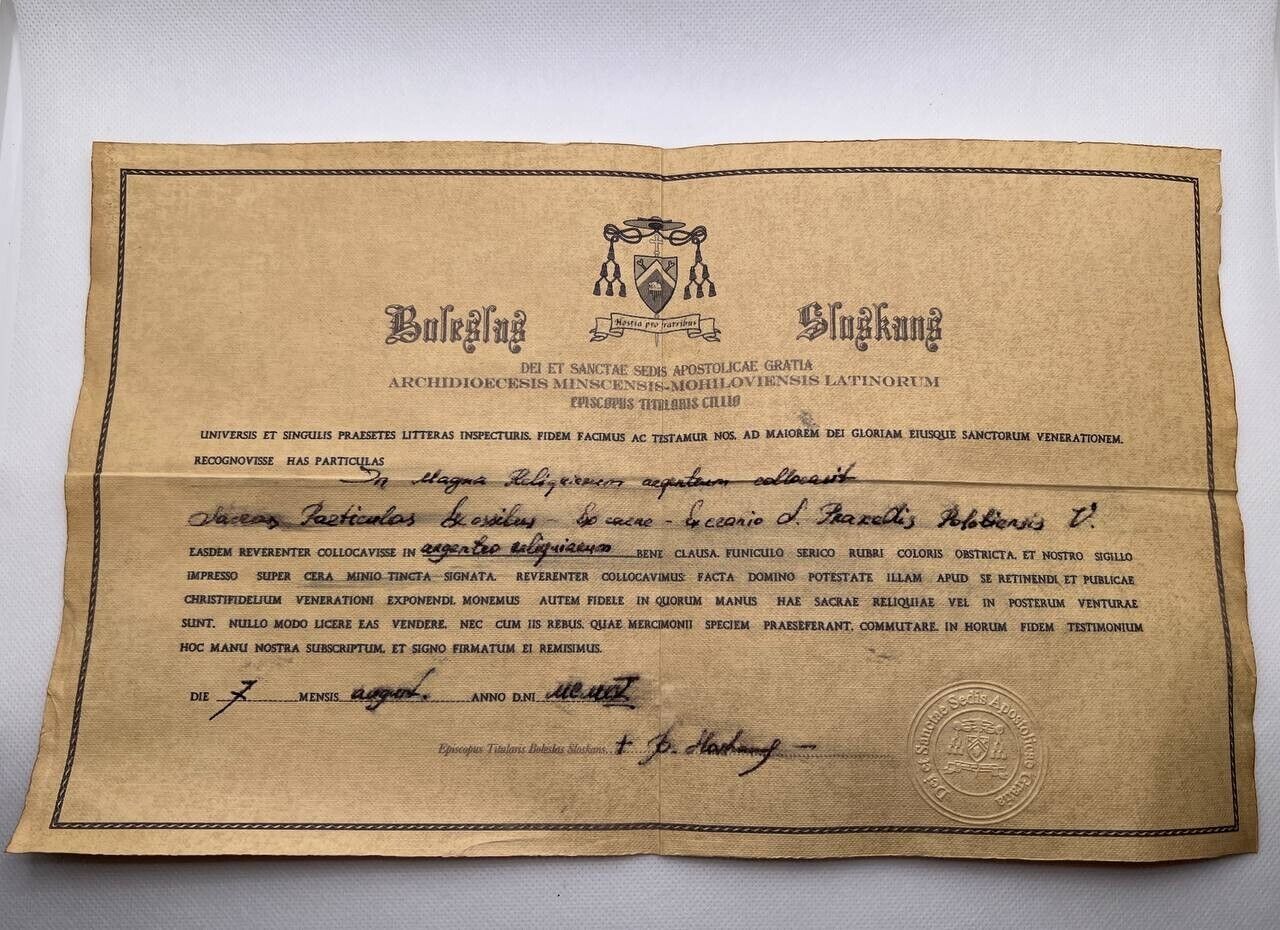 Boleslas Sloskans
Hostia pro fratribus
DEI ET SANCTAE SEDIS APOSTOLICAE GRATIA
ARCHIDIOECESIS MINSCENSIS-MOHILOVIENSIS LATINORUM
EPISCOPUS TITULARIS CILLIO
UNIVERSIS ET SINGULIS PRAESETES LITTERAS INSPECTURIS. FIDEM FACIMUS AC TESTAMUR NOS. AD MAIOREM DEI GLORIAM EIUSQUE SANCTORUM VENERATIONEM.
RECOGNOVISSE HAS PARTICULAS
In Magna Reliquiarum argenteum collocavit
Sacras Particulas Ex ossibus - Ex carne - S. Praxedis Polotiensis V.
EASDEM REVERENTER COLLOCAVISSE IN argenteo reliquiarum BENE CLAUSA. FUNICULO SERICO RUBRI COLORIS OBSTRICTA. ET NOSTRO SIGILLO
IMPRESSO SUPER CERA MINIO TINCTA SIGNATA. REVERENTER COLLOCAVIMUS: FACTA DOMINO POTESTATE ILLAM APUD SE RETINENDI. ET PUBLICAE
CHRISTIFIDELIUM VENERATIONI EXPONENDI. MONEMUS AUTEM FIDELE IN QUORUM MANUS HAE SACRAE RELIQUIAE VEL IN POSTERUM VENTURAE
SUNT. NULLO MODO LICERE EAS VENDERE. NEC CUM IIS REBUS. QUAE MERCIMONII SPECIEM PRAESEFERANT. COMMUTARE. IN HORUM FIDEM TESTIMONIUM
HOC MANU NOSTRA SUBSCRIPTUM. ET SIGNO FIRMATUM EI REMISIMUS.
DIE 7 MENSIS august. ANNO D.NI
Episcopus Titularis Boleslas Sloskans. + B. Sloskans
Dei et Sanctae Sedis Apostolicae Gratia